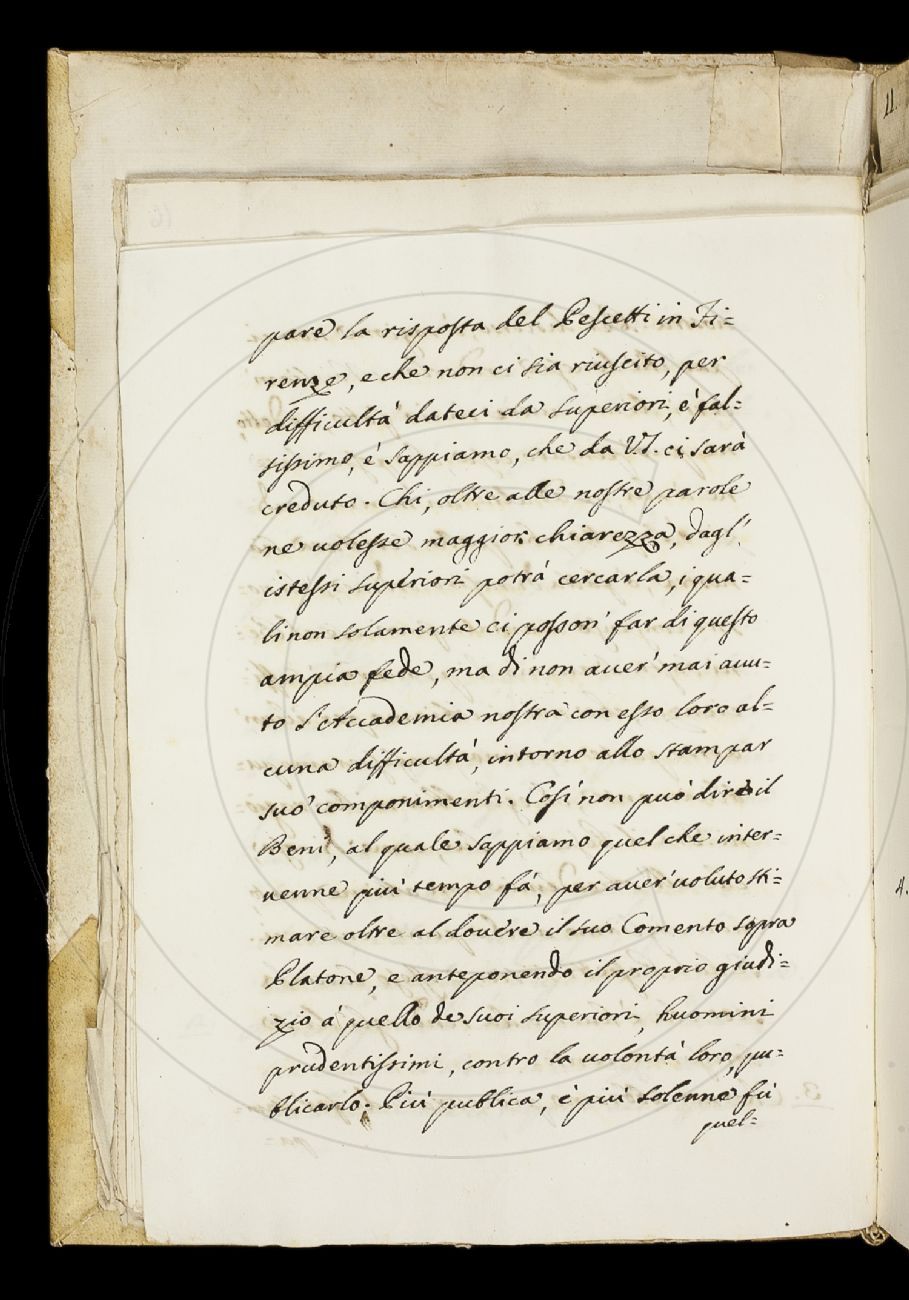 pare la risposta del Pescetti in Fi=
renze, e che non ci sia riuscito, per
difficultà dateci da superiori, è fal=
sissimo, è sappiamo, che da VS. ci sarà
creduto. Chi, oltre alle nostre parole
ne uolesse maggior chiarezza, dagl'
istessi superiori potrà cercarla, i qua=
li non solamente ci posson' far di questo
ampia fede, ma di non auer' mai auu=
to l'Accademia nostra con esso loro al=
cuna difficultà, intorno allo stampar
suo' componimenti. Così non può dire il
Beni, al quale sappiamo quel che inter=
uenne più tempo fà, per auer' uoluto sti=
mare oltre al douere il suo Comento sopra
Platone, e anteponendo il proprio giudi=
zio à quello de suoi superiori, huomini
prudentissimi, contro la uolontà loro, pu=
blicarlo. Più publica, è più solenne fù
quel=
11.
4.